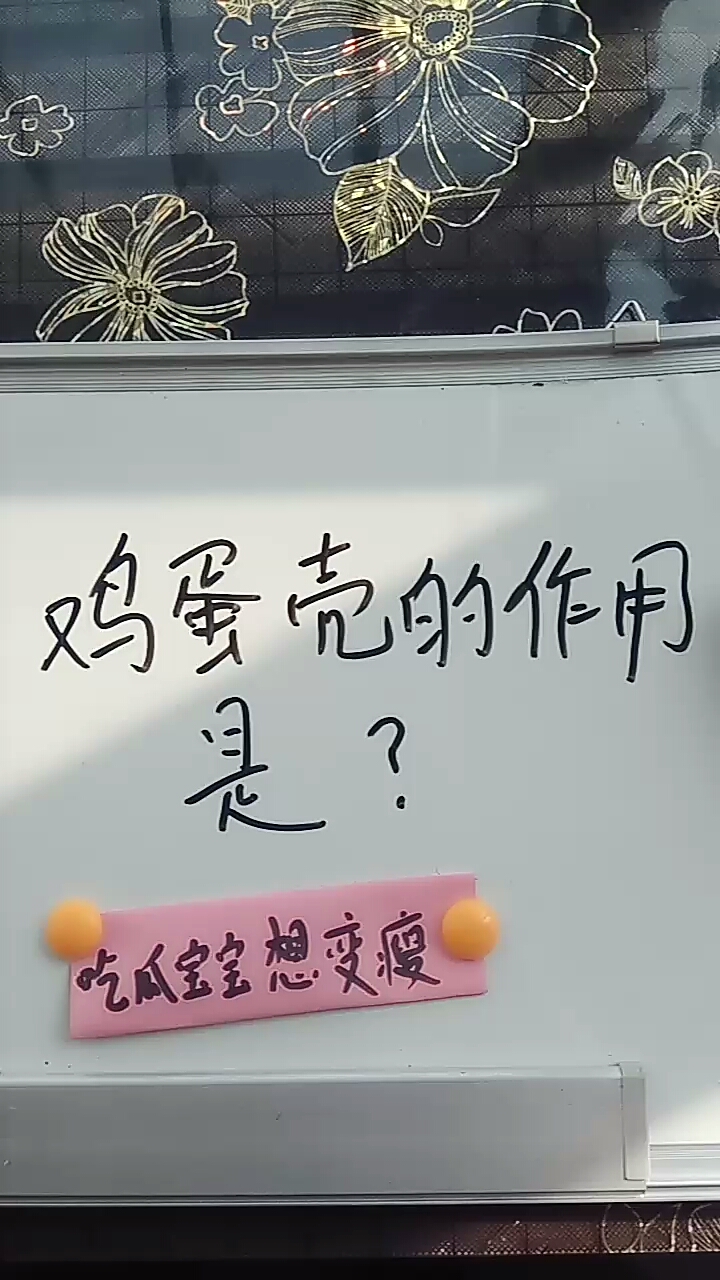 鸡蛋壳的作用
是？
吃瓜宝宝想变瘦